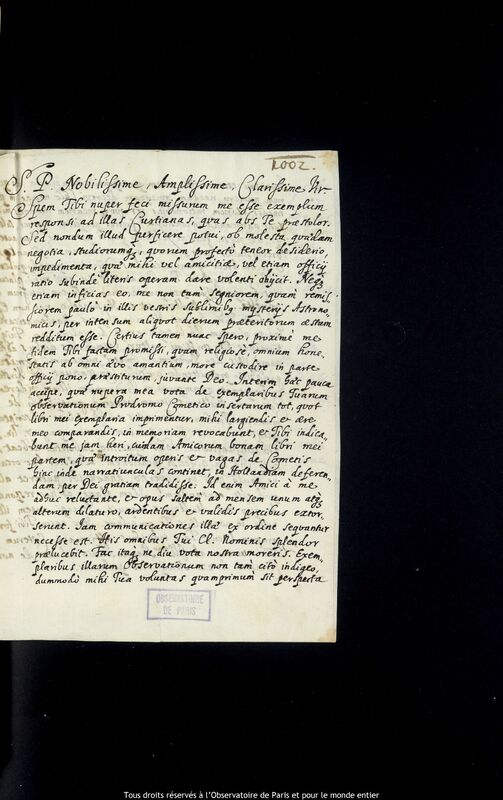 1002.
S. P. Nobilissime, Amplissime, Clarissime Vir
Spem Tibi nuper feci missurum me esse exemplum
responsi ad illas Curtianas, quas abs Te præstolor.
Sed nondum illud perficere potui, ob molesta quædam
negotia, studiorumq;, quorum profectò teneor desiderio
impedimenta, quæ mihi vel amicitiæ, vel etiam officij
ratio subinde literis operam dare volenti objicit. Neq;
etiam inficias eo, me non tam segniorem, quam remis-
siorem paulò in illis vestris sublimibq mysterijs Astrono-
micis, per intensum aliquot dierum præteritorum æstum
redditum esse. Certius tamen nunc spero, proximè me
fidem Tibi factam promissi, quam religiosè, omnium hone-
statis ab omni ævo amantium, more custodire in parte
officij pono, præstiturum, juvante Deo. Interim hæc pauca
accipe, quæ nupera mea vota de exemplaribus Tuarum
observationum Prodromo Cometico insertarum tot, quot
libri mei exemplaria imprimentur, mihi largiendis et ære
meo comparandis, in memoriam revocabunt, et Tibi indica-
bunt me jam heri, cuidam Amicorum bonam libri mei
partem, quæ introitum operis et vagas de Cometis
hinc inde narratiunculas continet, in Hollandiam deferen-
dam, per Dei gratiam tradidisse. Id enim Amici à me
adhuc reluctante, et opus saltem ad mensem unum atq;
alterum dilaturo, ardentibus et validis precibus extor-
serunt. Iam communicationes illæ ex ordine sequantur
necesse est. Hîs omnibus Tui Cl. Nominis splendor
prælucebit. Fac itaq; ne diu vota nostra moreris. Exem-
plaribus illarum Observationum non tam citò indigeo,
dummodò mihi Tua voluntas quamprimum sit perspecta
OBSERVATOIRE
DE PARIS
Tous droits réservés à l'Observatoire de Paris et pour le monde entier